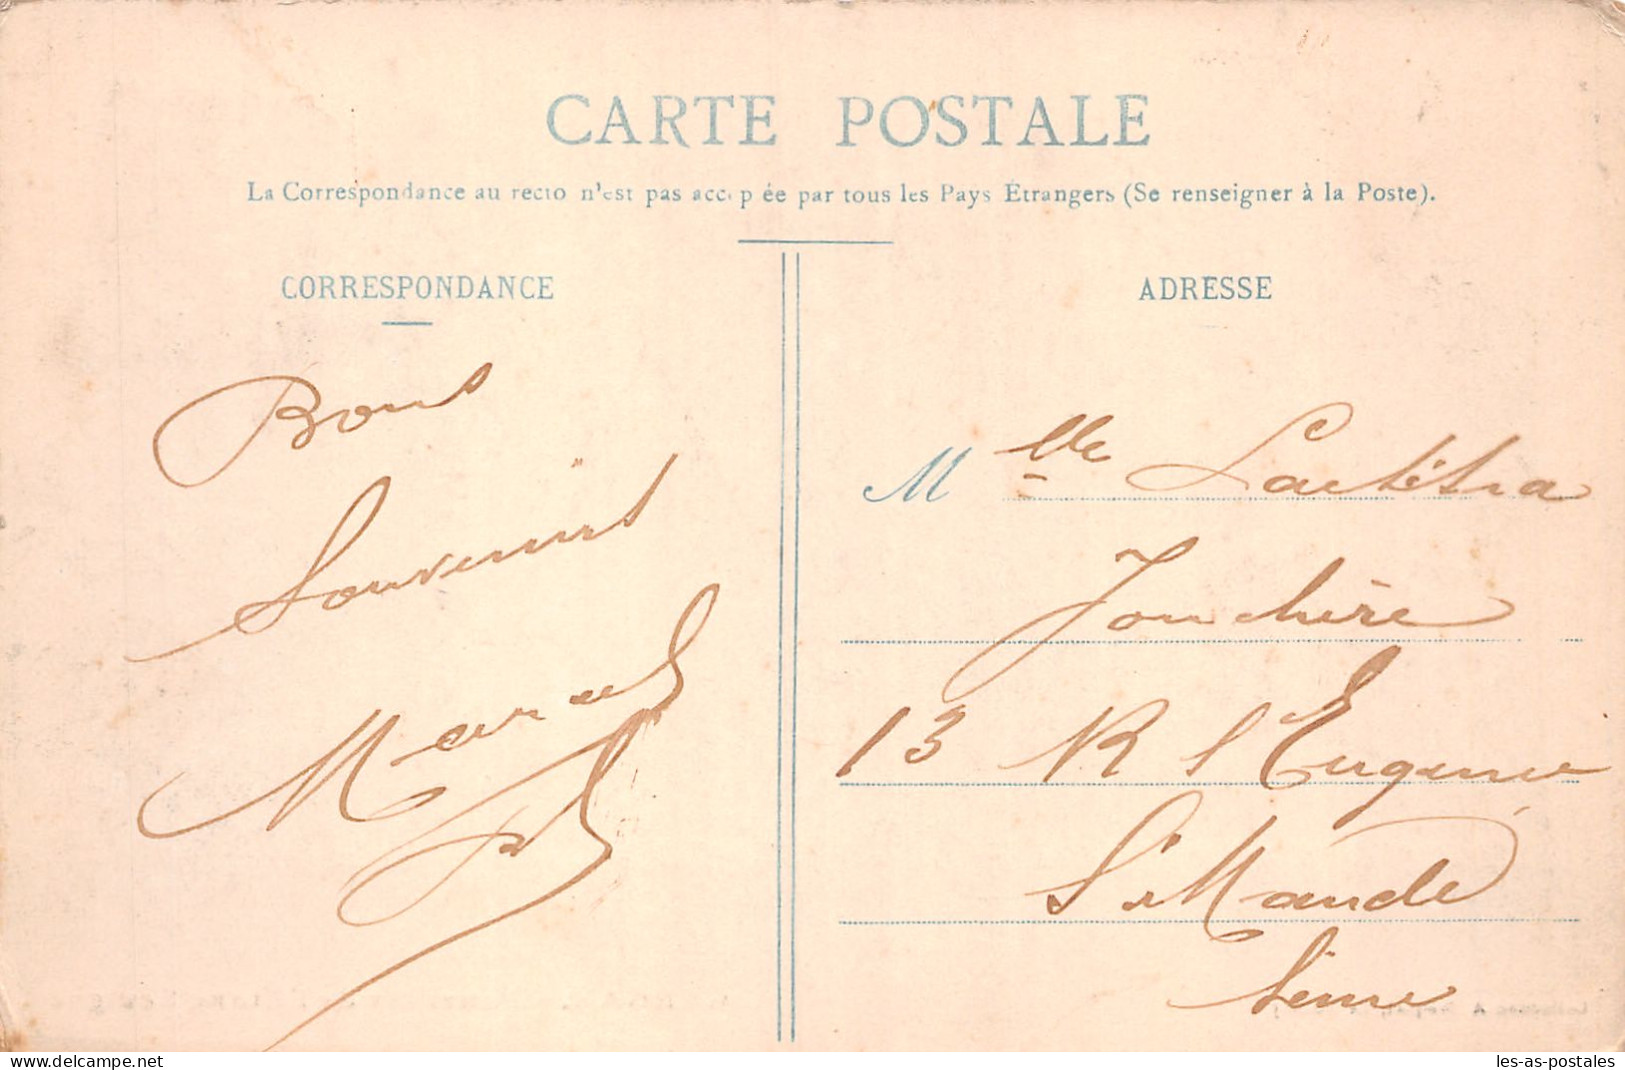 CARTE POSTALE
La Correspondance au recto n'est pas acceptée par tous les Pays Étrangers (Se renseigner à la Poste).
CORRESPONDANCE
Bons
Souvenirs
Marcel
ADRESSE
Mlle Laetitia
Jonchère
13 R l'Eugenie
St Mandé
Seine
delcampe.net
les-as-postales